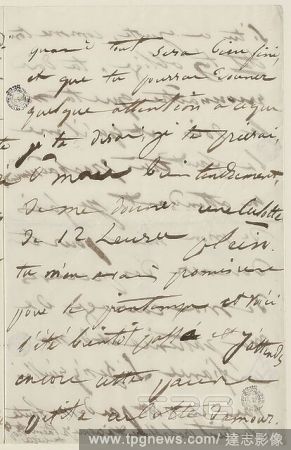 quand tout sera bien fini
et que tu pourras donner
quelque attention à ce que
je te dirai, je te prierai,
mais bien tendrement,
de me donner une culotte
de 12 heures plein.
tu m'en avais promis une
pour le printemps et voici
l'été bientôt passé et j'attends
encore cette pauvre
petite culotte d'amour.
www.tpgnews.com 達志影像